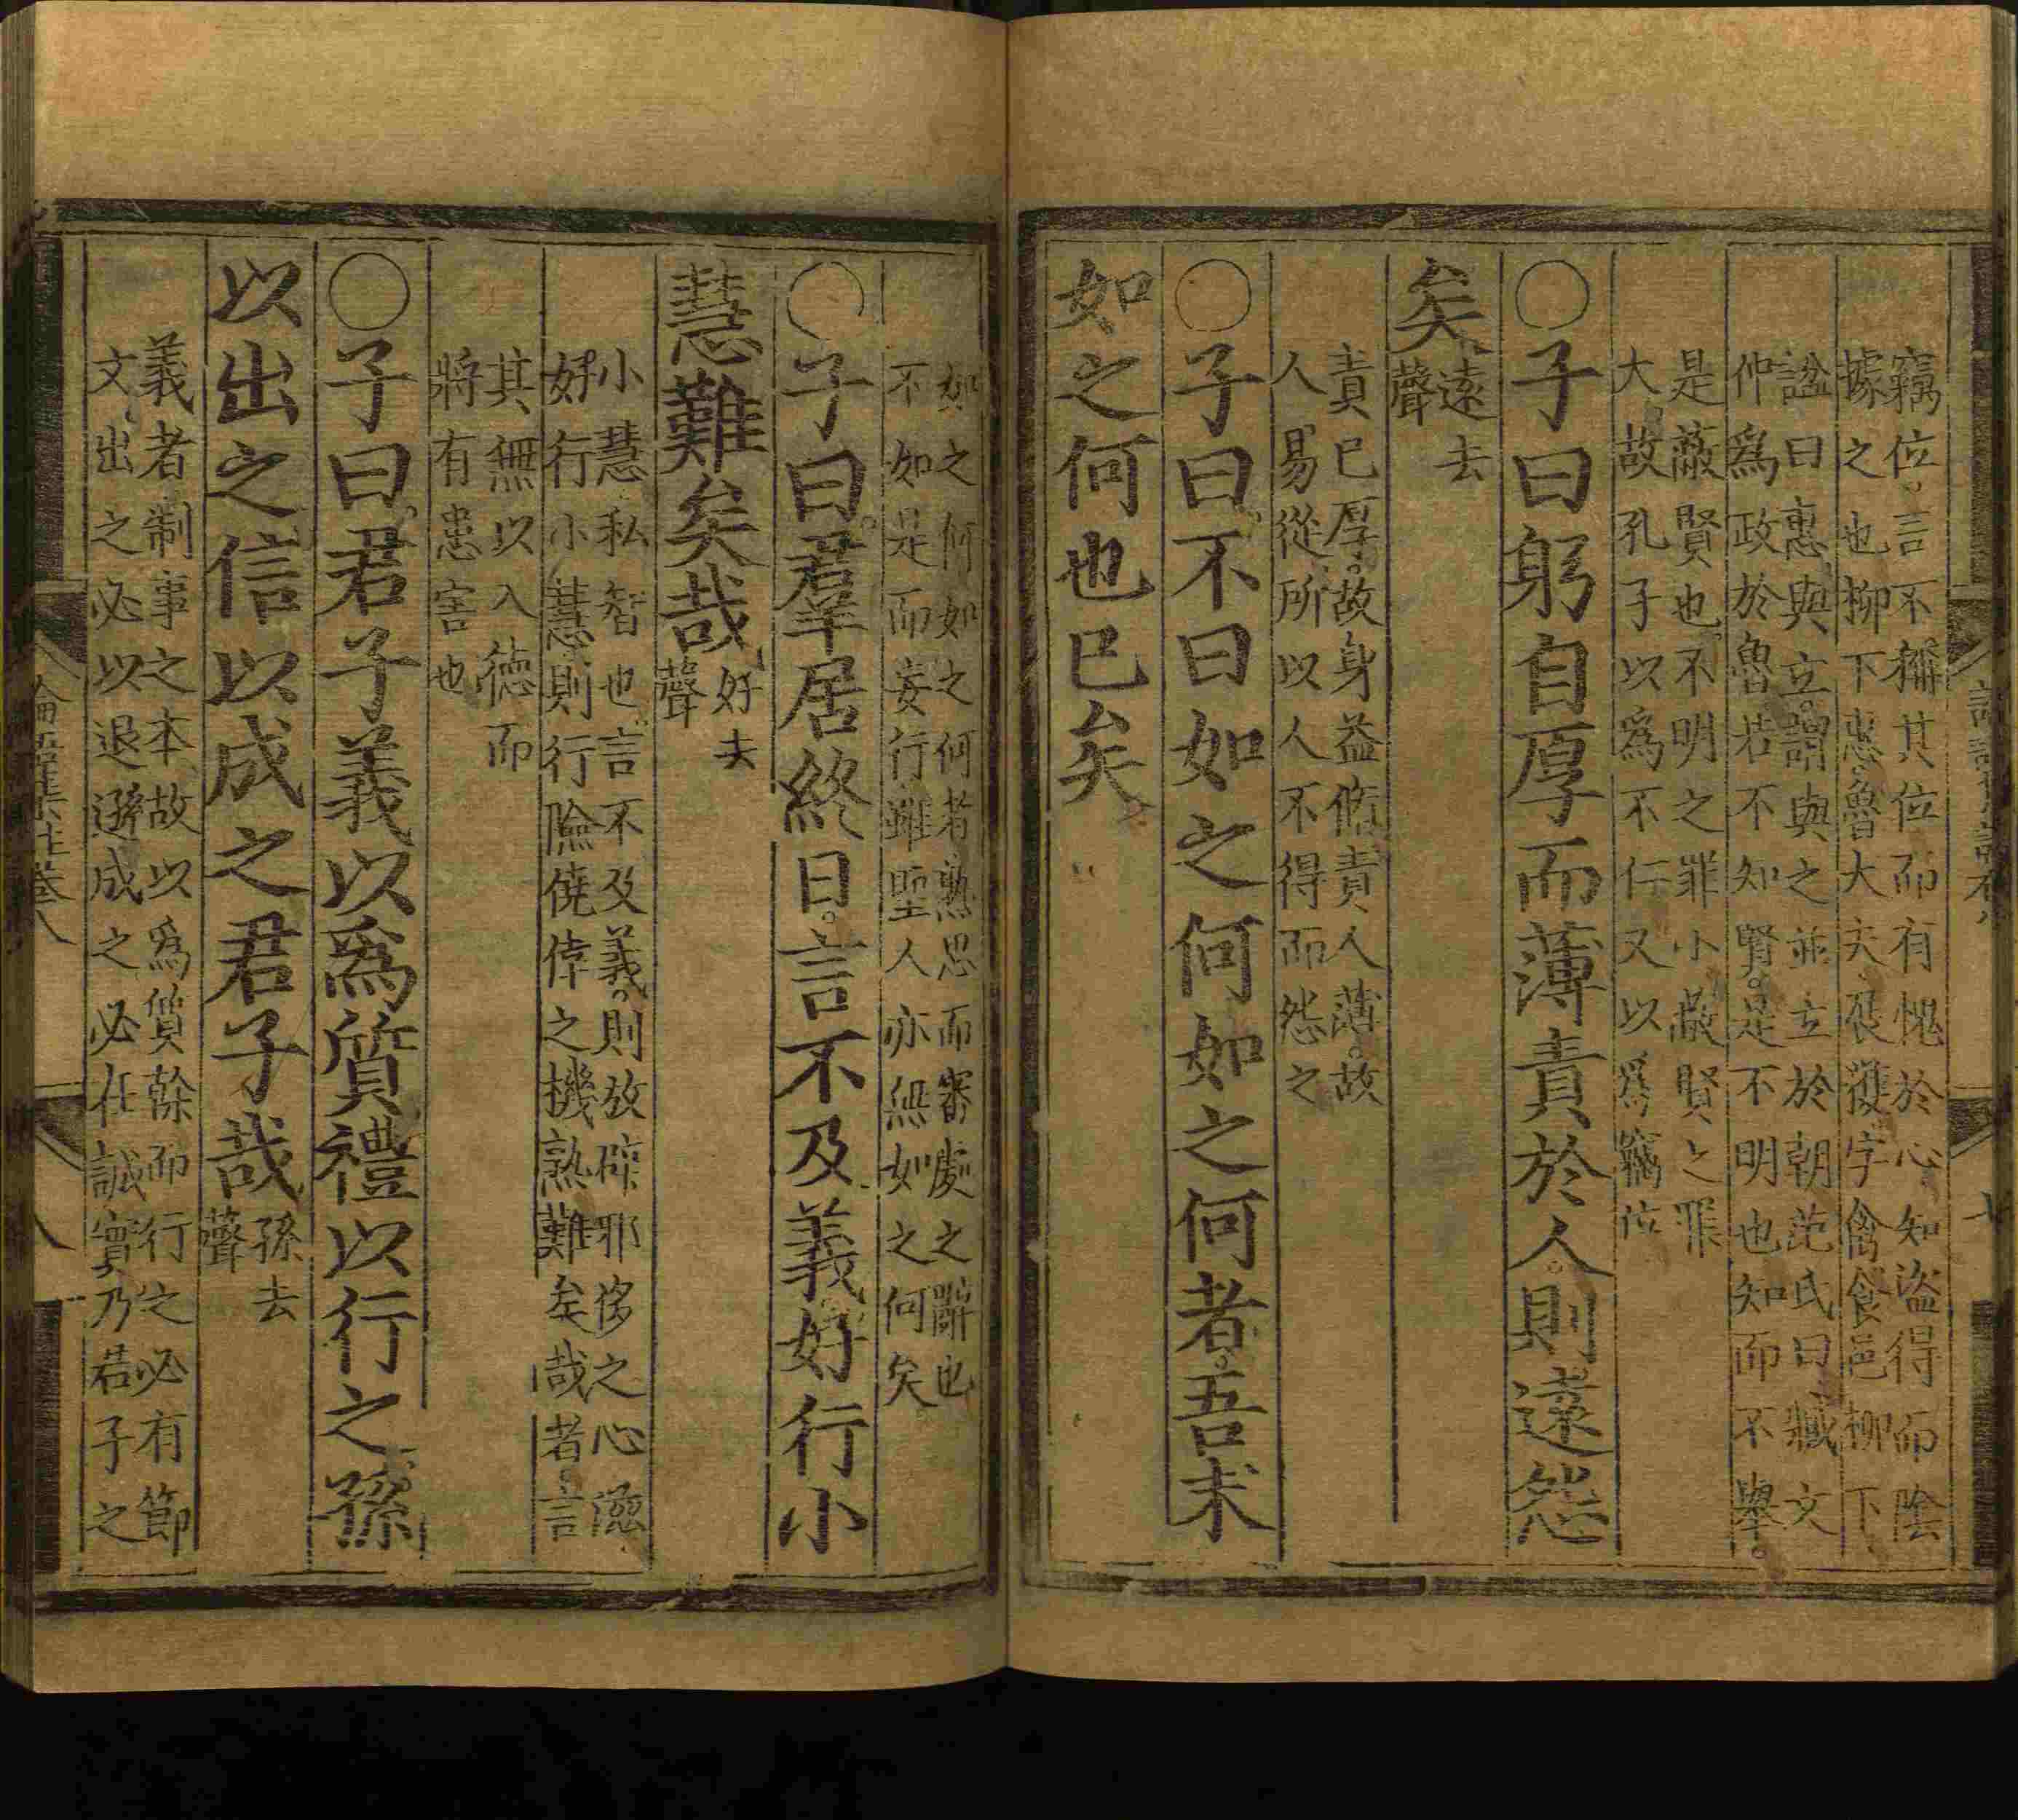 竊位。言不稱其位而有愧於心如盜得而陰
據之也柳下惠魯大夫展獲字禽食邑柳下
諡曰惠與立。謂與之並立於朝范氏曰臧文
仲爲政於魯若不知賢。是不明也知而不舉。
是蔽賢也。不明之罪小蔽賢之罪
大故孔子以爲不仁又以爲竊位
○子曰躬自厚而薄責於人。則遠怨
矣
遠去
聲
責已厚。故身益脩責人薄。故
人易從所以人不得而怨之
○子曰。不曰如之何如之何者。吾末
如之何也已矣
如之何如之何者熟思而審處之辭也
不如是而妄行雖聖人亦無如之何矣
○子曰。羣居終日。言不及義好行小
慧難矣哉
好去
聲
小慧私智也言不及義。則放辟邪侈之心滋
好行小慧則行險僥倖之機熟難矣哉者。言
其無以入德而
將有患害也
○子曰。君子義以爲質禮以行之孫
以出之信以成之君子哉
孫去
聲
義者制事之本故以爲質幹而行之必有節
文出之必以退遜成之必在誠實乃君子之
論語集註卷八
八